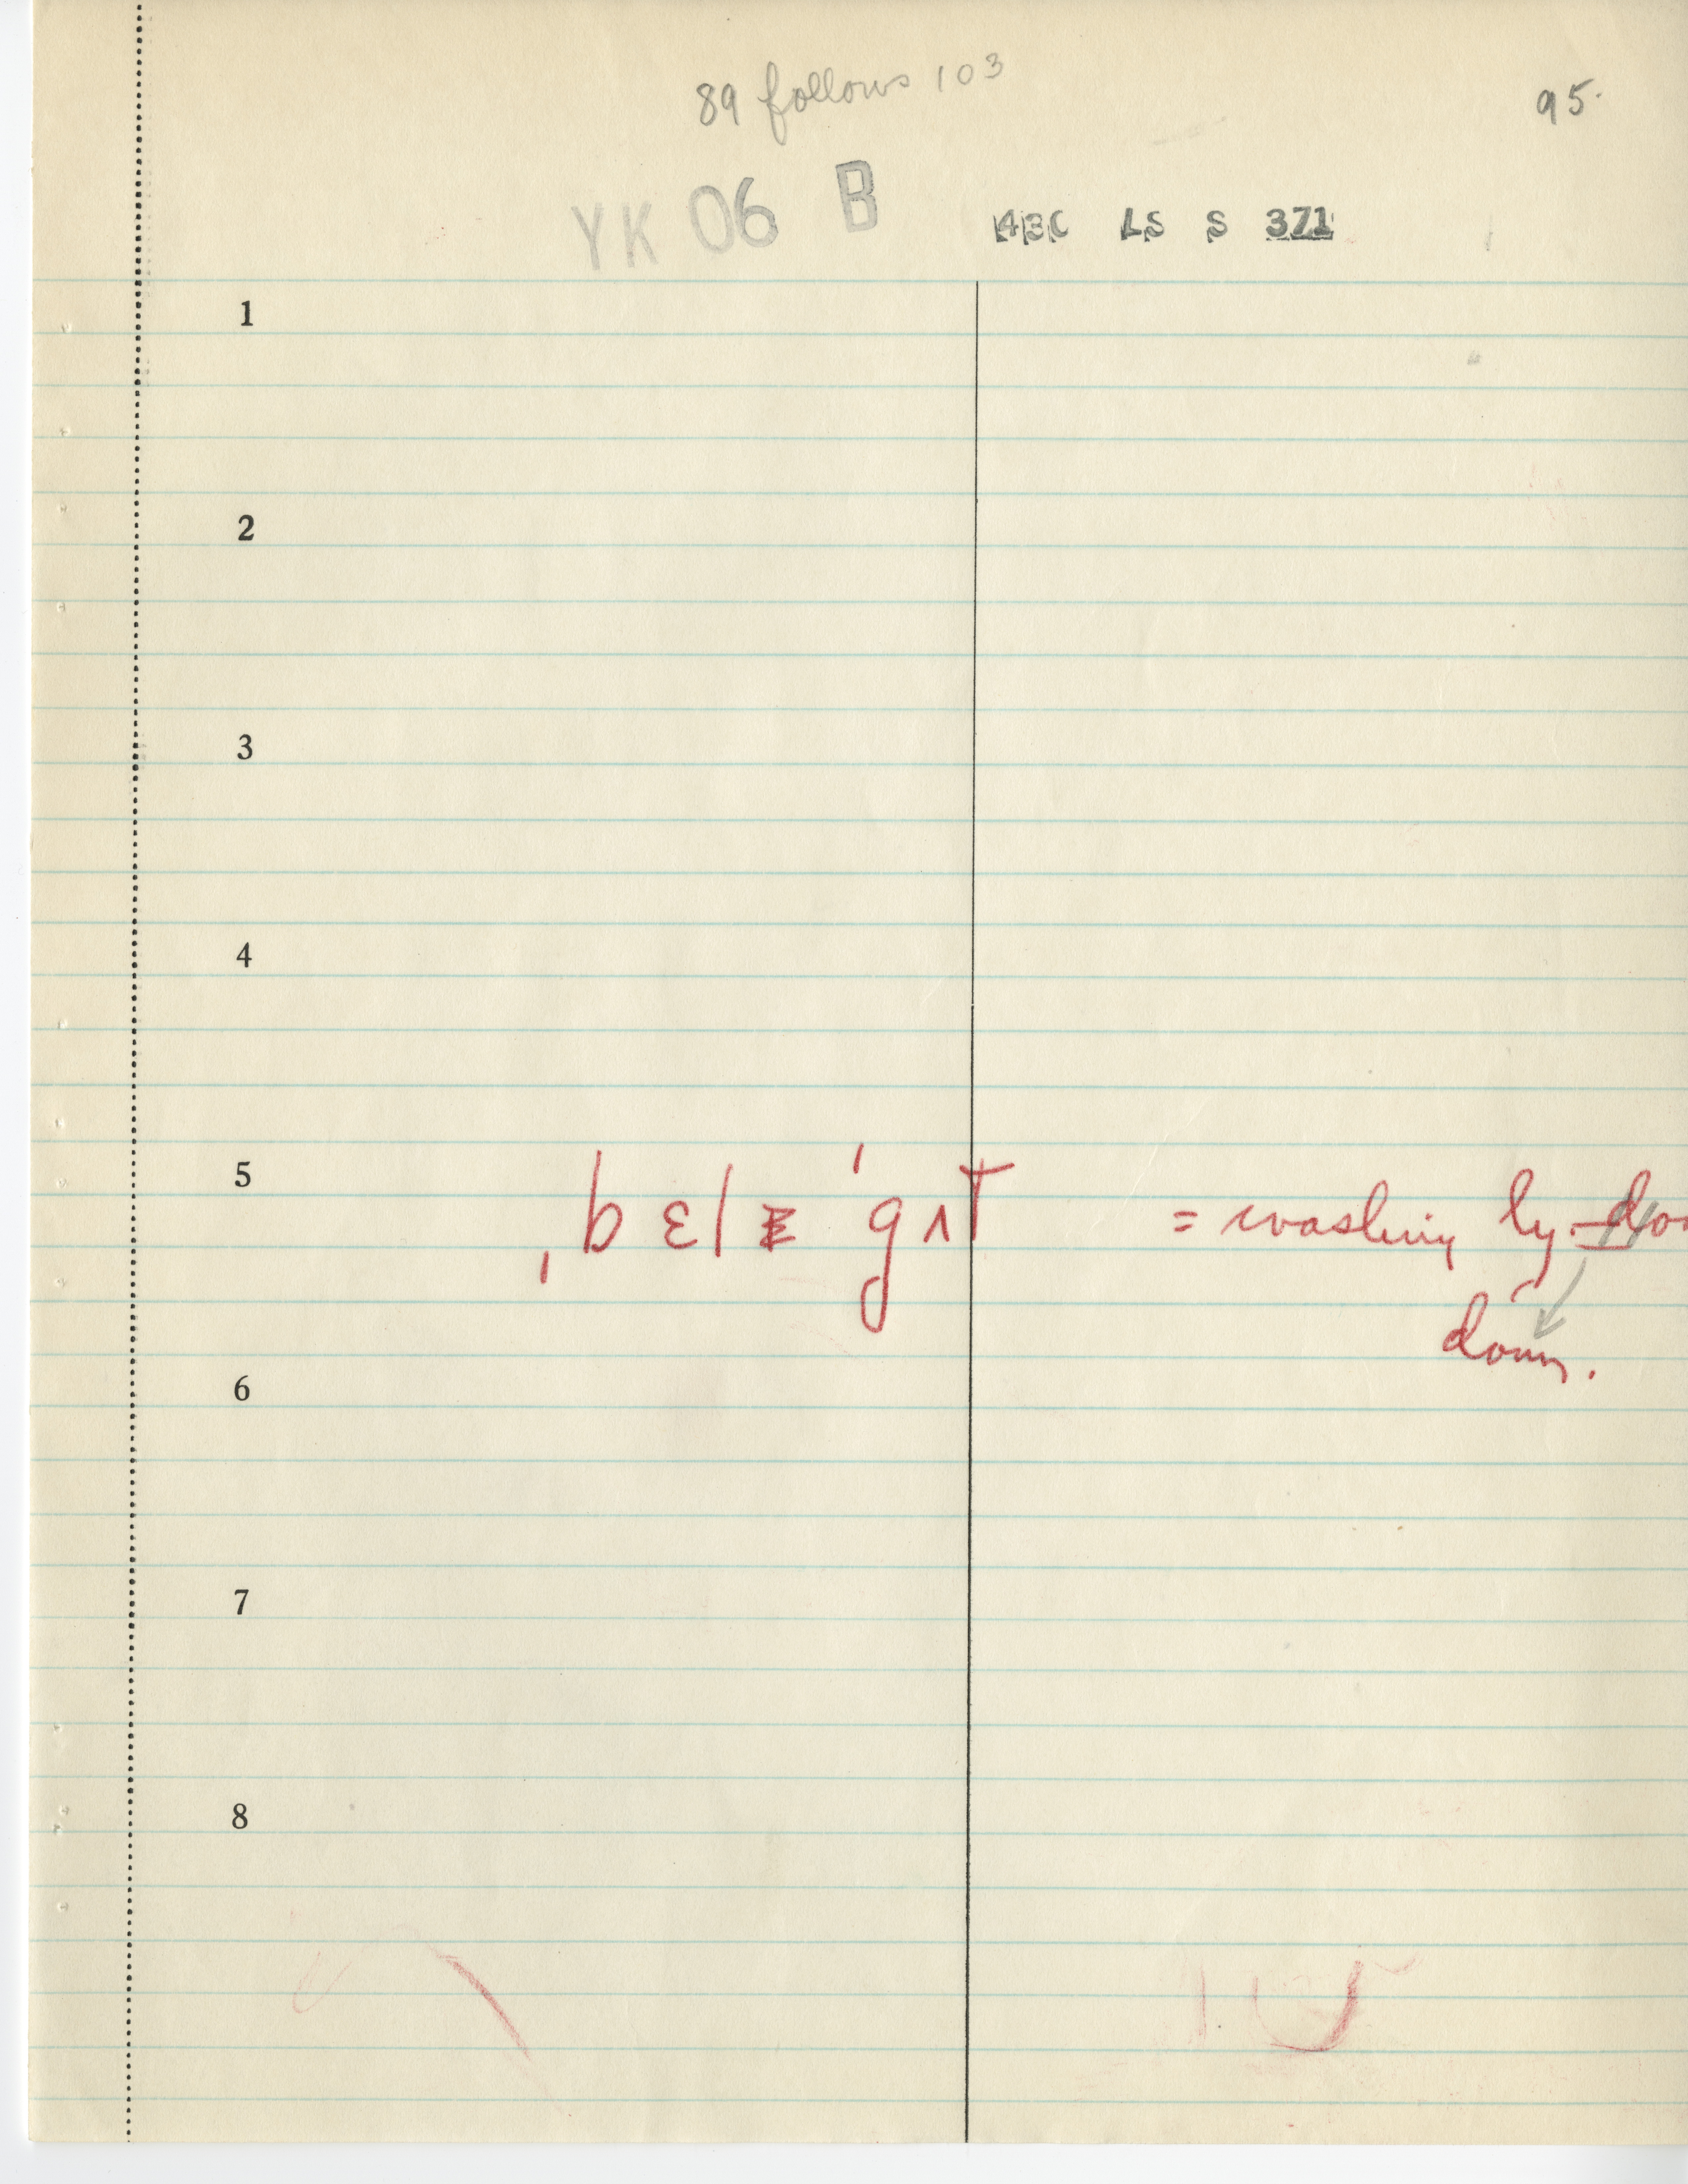 89 follows 103
95.
YK 06 B
ABC LS S 371
1
2
3
4
5 ˌbɛl ˈgʌt = washing ly.
down.
6
7
8